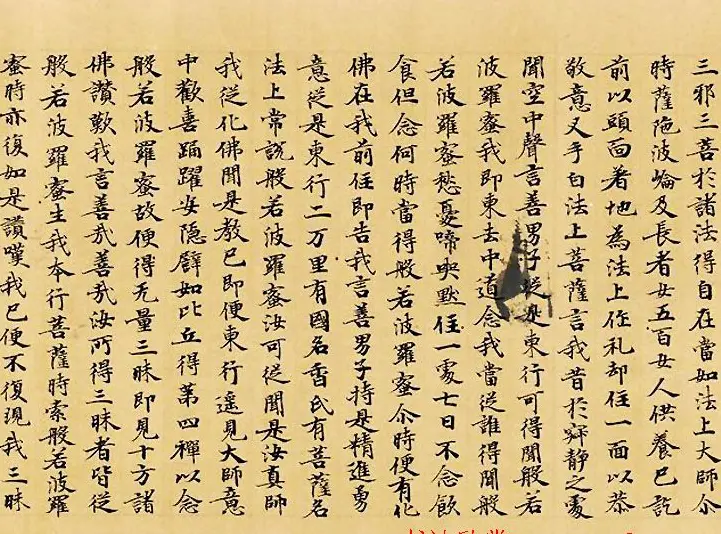 三邪三菩於諸法得自在當如法上大師尒
時薩陁波崘及長者女五百女人供養已訖
前以頭面著地為法上作礼却住一面以恭
敬意叉手白法上菩薩言我昔於寂靜之處
聞空中聲言善男子從是東行可得聞般若
波羅蜜我即東去中道念我當從誰得聞般
若波羅蜜愁憂啼哭默住一處七日不念飲
食但念何時當得般若波羅蜜尒時便有化
佛在我前住即告我言善男子持是精進勇
意從是東行二万里有國名香氏有菩薩名
法上常說般若波羅蜜汝可從聞是汝真師
我從化佛聞是教已即便東行遙見大師意
中歡喜踊躍安隱譬如比丘得第四禪以念
般若波羅蜜故便得无量三昧即見十方諸
佛讚歎我言善哉善哉汝所得三昧者皆從
般若波羅蜜生我本行菩薩時索般若波羅
蜜時亦復如是讚嘆我已便不復現我三昧